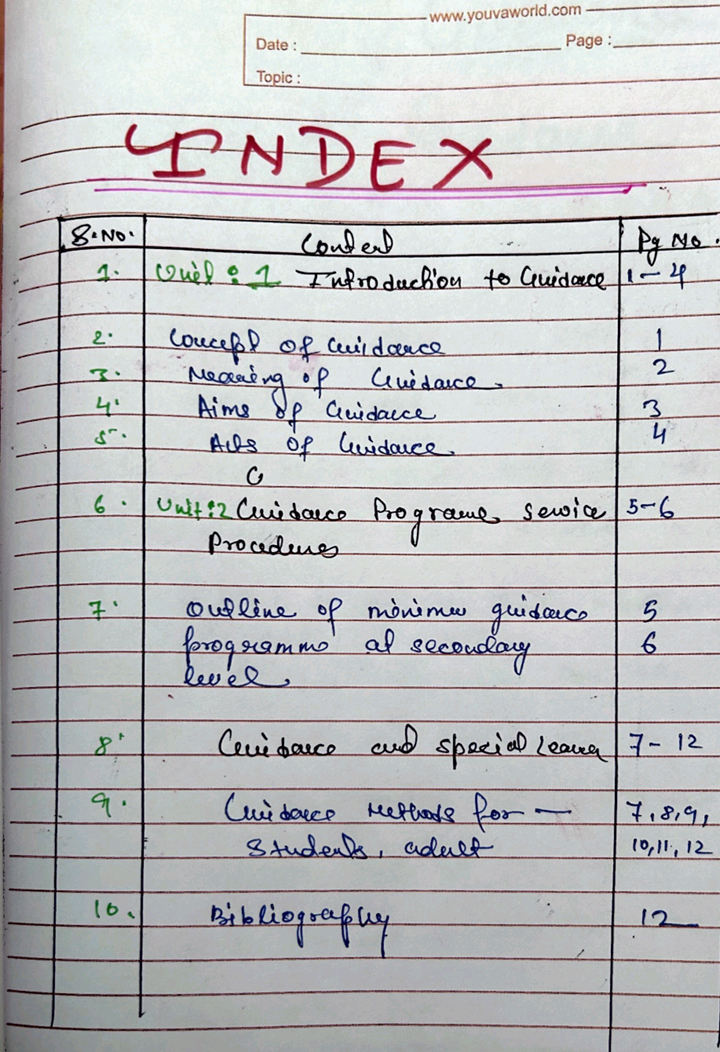 www.youvaworld.com
Date : Page :
Topic :
INDEX
S.No. Content Pg No.
1. Unit : 1 Introduction to Guidance 1-4
2. Concept of Guidance 1
3. Meaning of Guidance. 2
4. Aims of Guidance 3
5. of Guidance. 4
6. Unit:2 Guidance Programe service 5-6
Procedures
7. Outline of minimum guidance 5
programme at secondary 6
level.
8. Guidance and special 7-12
9. Guidance Methods for — 7,8,9,
Students, adult 10,11,12
10. Bibliography 12